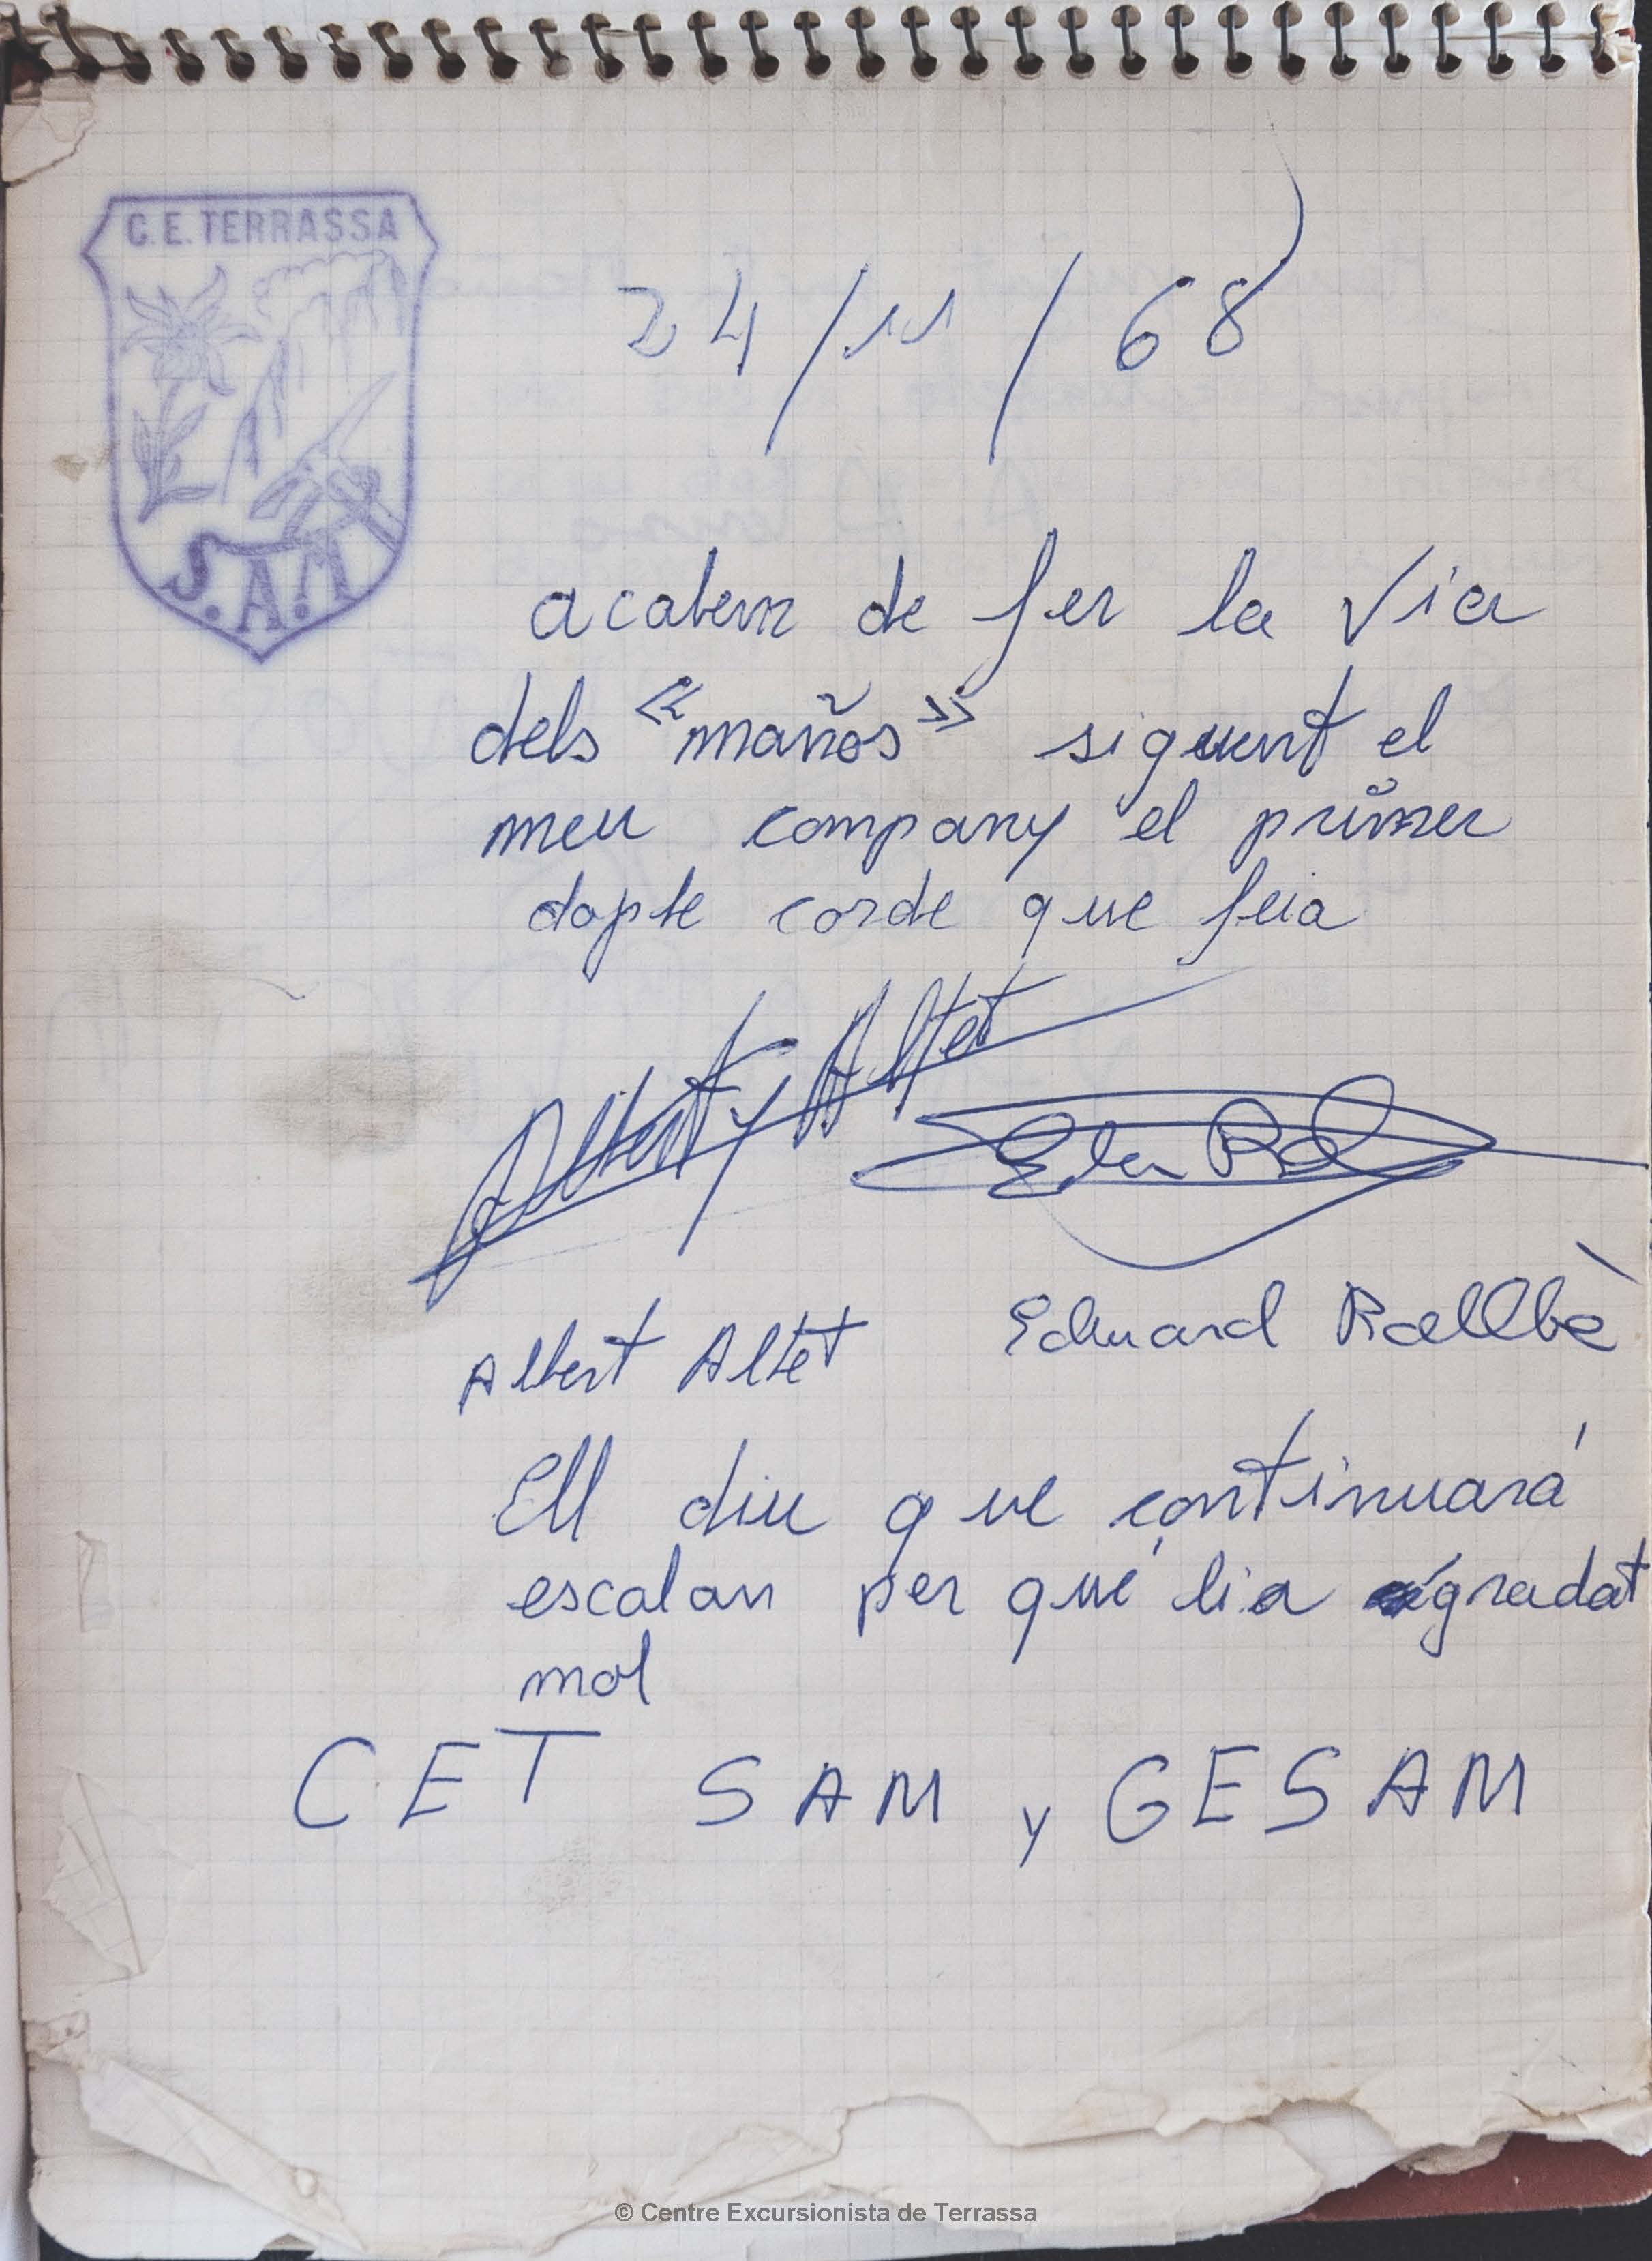 C.E. TERRASSA
S.A.M
24/11/68
acabem de fer la Via
dels «maños» siguent el
meu company el primer
dapte corde que feia
Albert Altet
Albert Altet
Eduard Rallbè
Ell diu que continuará
escalan per qué li a agradat
mol
CET SAM y GESAM
© Centre Excursionista de Terrassa